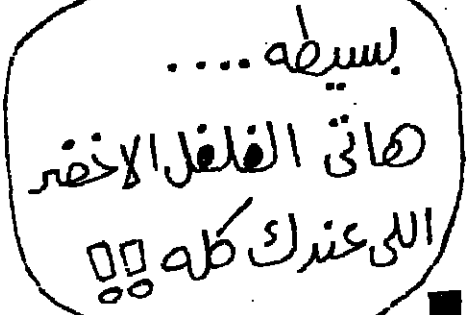 بسيطه ....
هاتى الفلفل الاخضر
اللى عندك كله !!